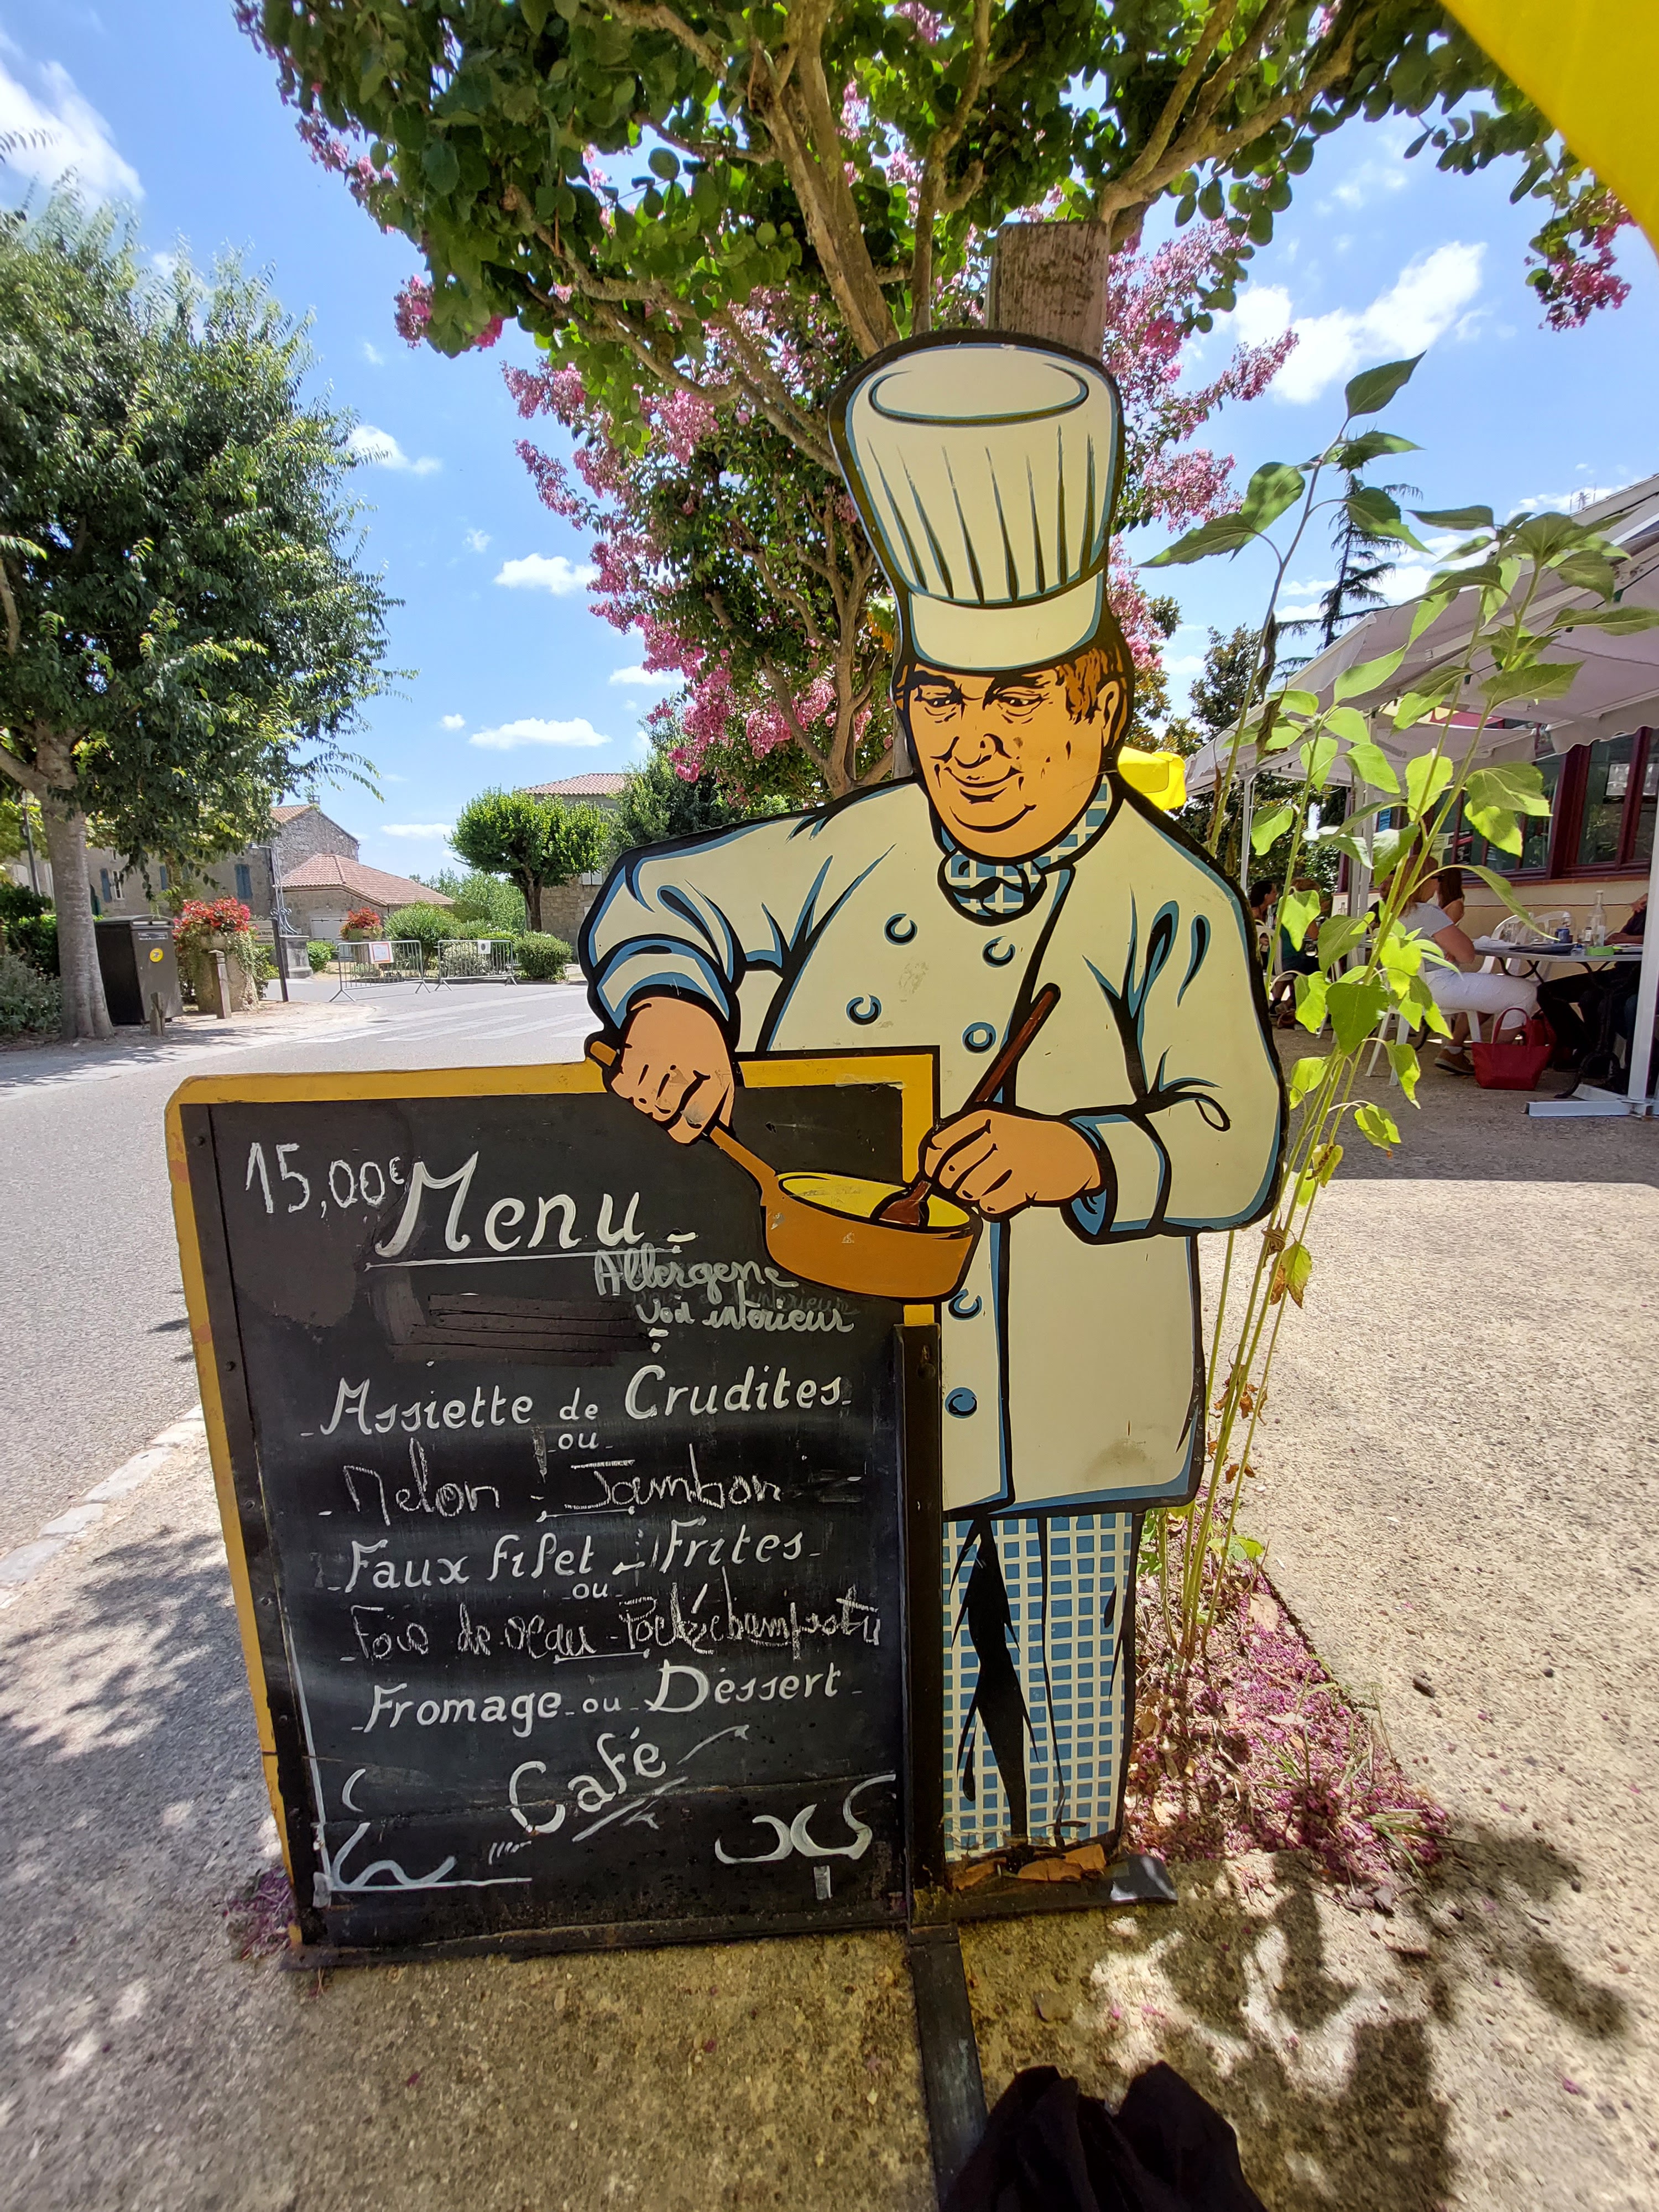 15,00€ Menu
Allergene
Voir intérieur
- Assiette de Crudites -
ou
- Melon - Jambon
- Faux filet - Frites -
ou
- Foie de veau - Poêlé champêtre
- Fromage - ou - Dessert -
Café